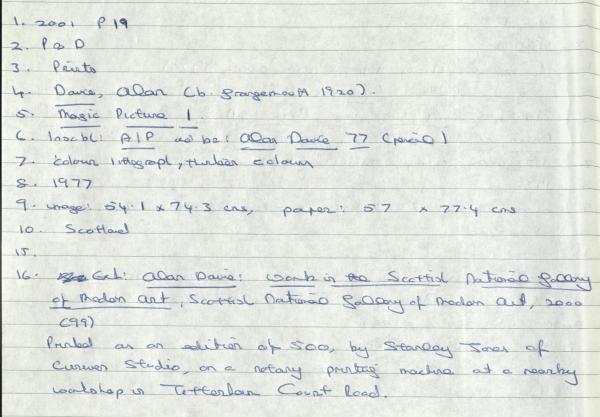 1. 2001 P 19
2. P & D
3. Prints
4. Davie, Alan (b. Grangemouth 1920).
5. Magic Picture 1
6. Inscbl: A/P br: Alan Davie 77 (pencil)
7. colour lithograph, thirteen colours
8. 1977
9. image: 54.1 x 74.3 cms, paper: 57 x 77.4 cms
10. Scotland
15.
16. Exh: Alan Davie: Works in the Scottish National Gallery
of Modern Art, Scottish National Gallery of Modern Art, 2000
(99)
Printed as an edition of 500, by Stanley Jones of
Curwen Studio, on a rotary printing machine at a nearby
workshop in Tottenham Court Road.